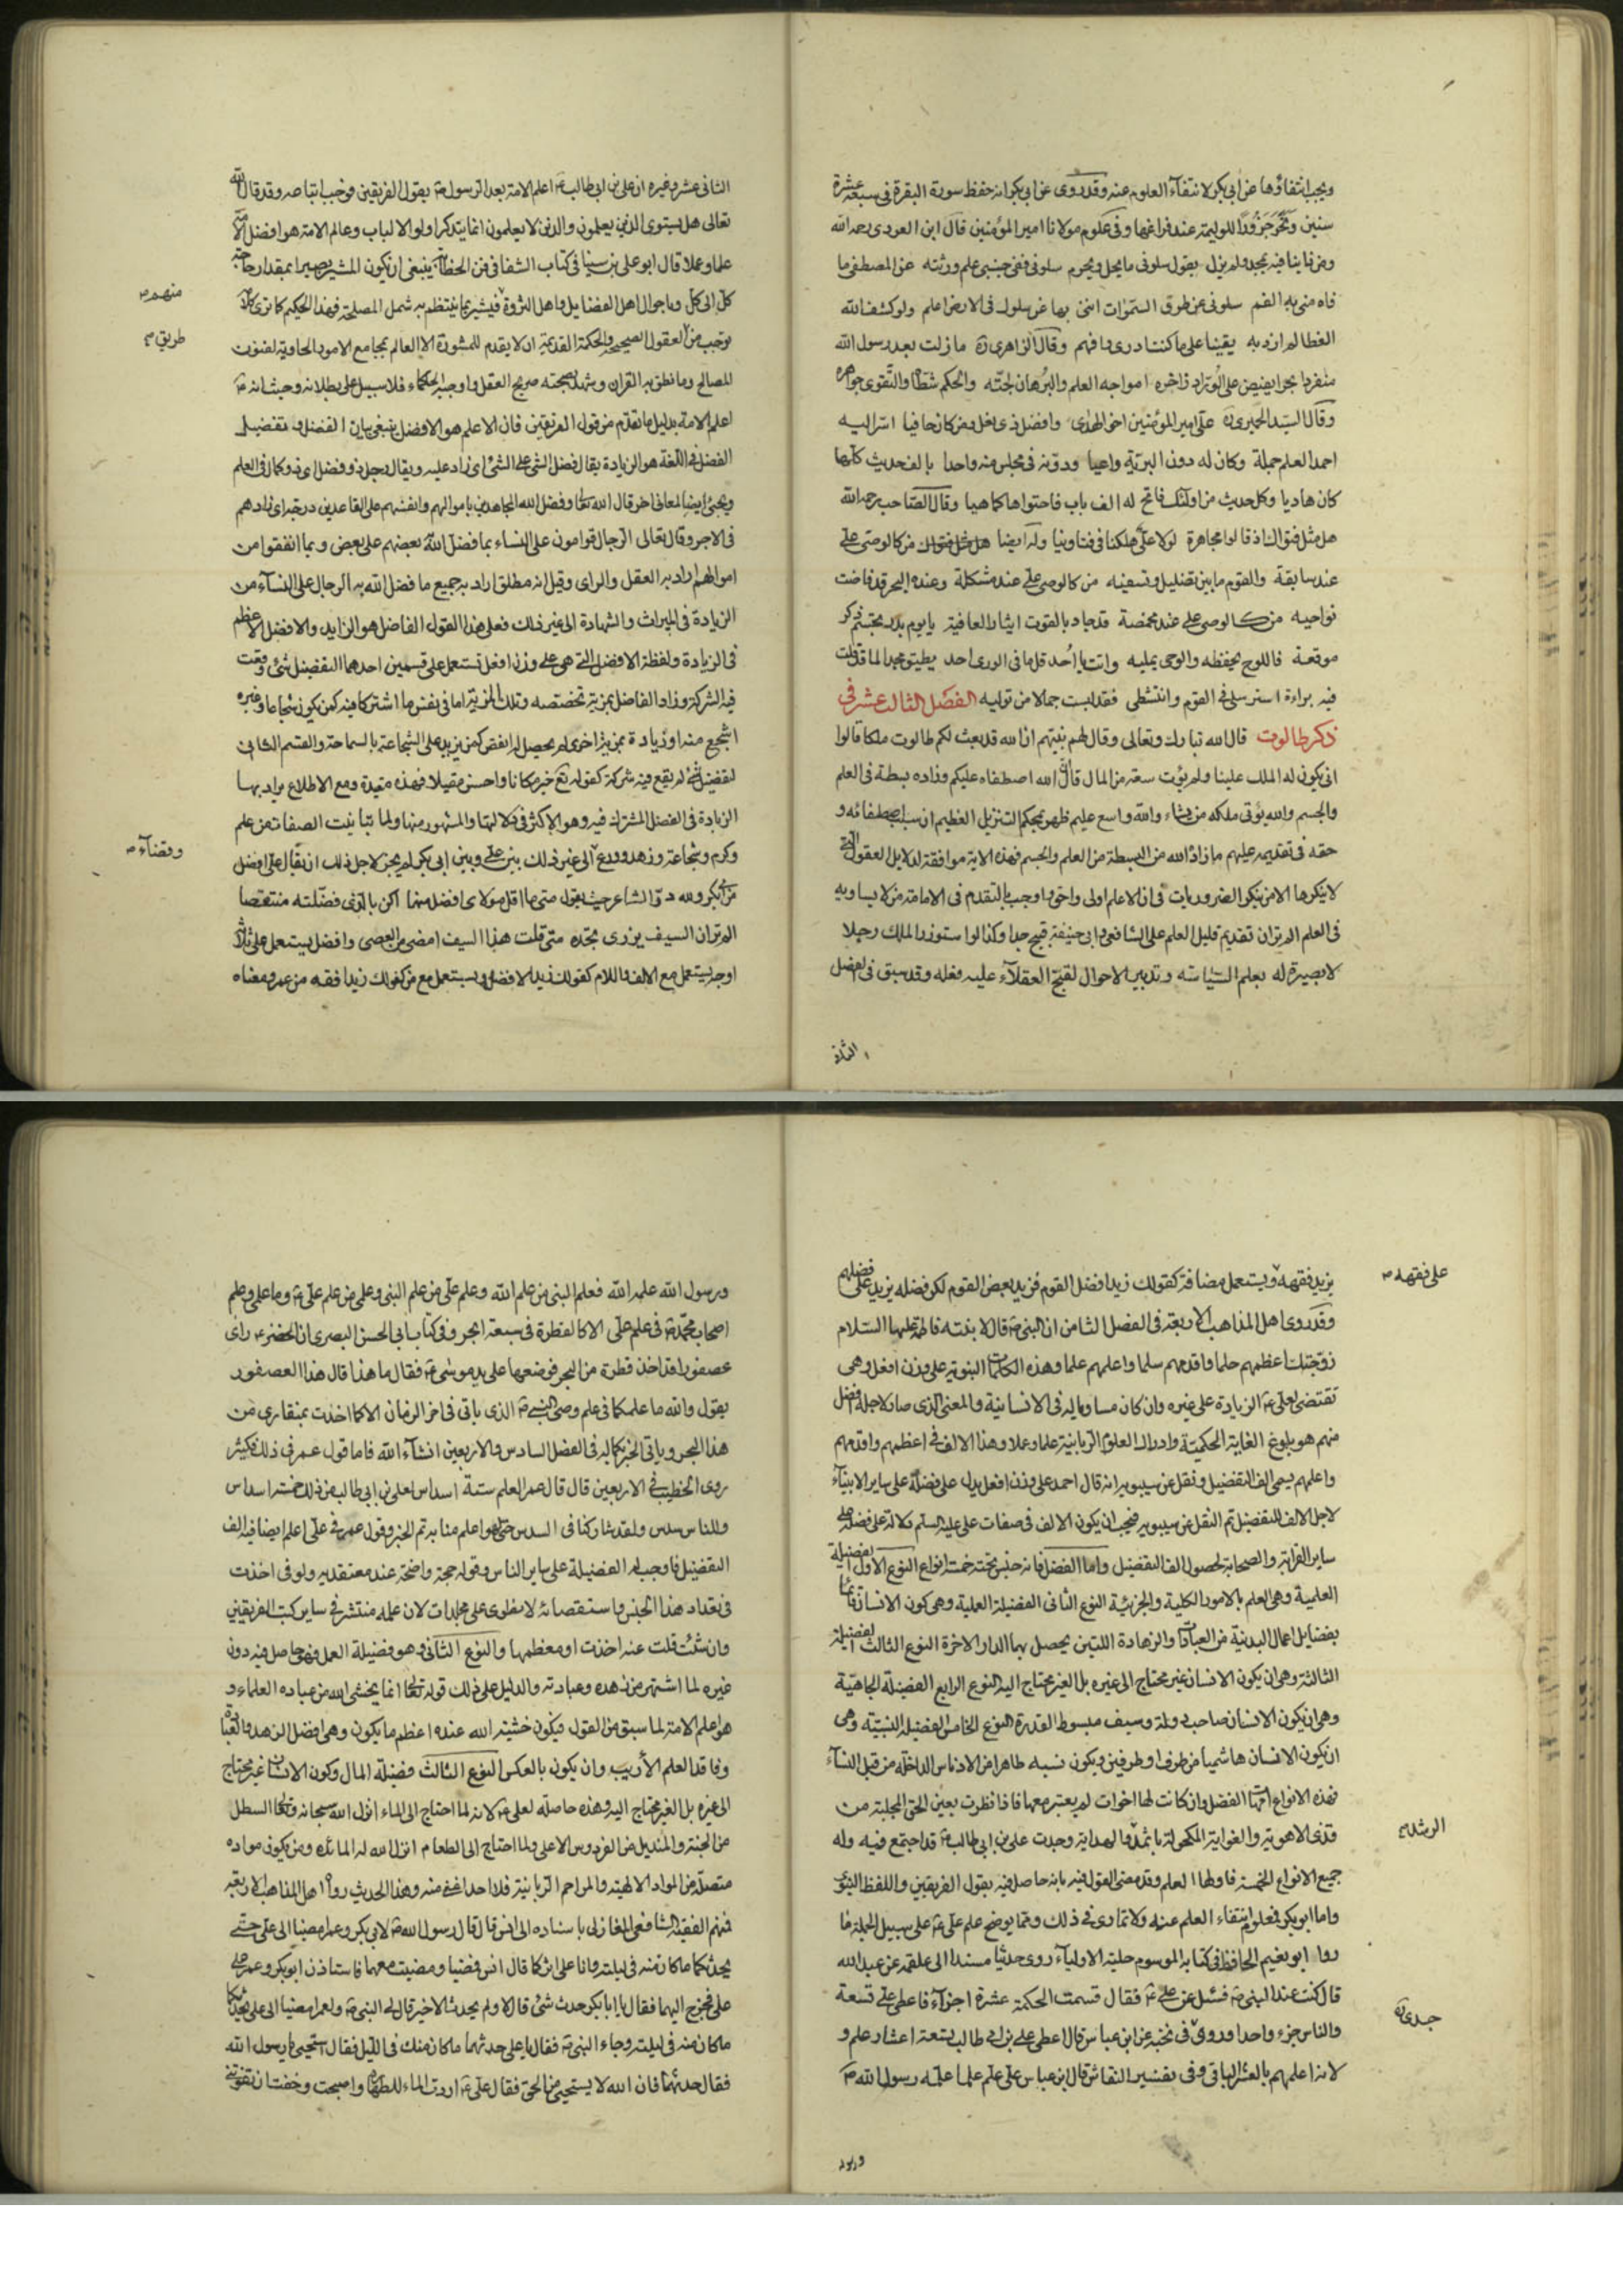 ويجب انتفاؤها عن ابي بكر لانتفاء العلوم عنه وقد روى عن ابي بكر انه حفظ سورة البقرة في سبعة عشرة
سنين ونحر جزورا للوليمة عند فراغها وفي علوم مولانا امير المؤمنين قال ابن العودي رحمه الله
ومن فاينا فيه بجد ولم يزل يقول سلوني ما يحل ويحرم سلوني ففي جنبي علم ورثته عن المصطفى ما
فاه مني به الفم سلوني عن طرق السموات انني بها عن سلوك في الارض اعلم ولو كشف الله
الغطا لم ازد به يقينا على ما كنت ادري وافهم وقال الزاهي ره ما زلت بعد رسول الله
منفردا بحرا يفيض على الوراد زاخره امواجه العلم والبرهان لجته والحلم شطاه والتقوى جواهره
وقال السيد الحميري ره علي امير المؤمنين اخو الهدى وافضل ذي نعل ومن كان حافيا اسر اليه
احمد العلم جملة وكان له دون البرية واعيا ودونه في مجلس منه واحدا بالف حديث كلها
كان هاديا وكل حديث من اولئك فاتح له الف باب فاحتواها كما هيا وقال الصاحب رحمه الله
هل مثل فتواك اذ قالوا مجاهرة لولا علي هلكنا في فتاوينا وله ايضا من كالوصي علي
عند سابقة والقوم ما بين تضليل وتسفيه من كالوصي علي عند مشكلة وعنده البحر قد فاضت
نواحيه من كالوصي علي عند مخمصة قد جاد بالقوت ايثارا لعافيه يا يوم بدر تجشم ذكر
موقعه فاللوح يحفظه والوحي يمليه وانت يا احد قل ما في الورى احد يطيق جحدا لما قد قلت
فيه براءة استرسلي في القوم وانتشطي فقد لبست جمالا من توليه الفصل الثالث عشر في
ذكر طالوت قال الله تبارك وتعالى وقال لهم نبيهم ان الله قد بعث لكم طالوت ملكا قالوا
انى يكون له الملك علينا ولم يؤت سعة من المال قال ان الله اصطفاه عليكم وزاده بسطة في العلم
والجسم والله يؤتي ملكه من يشاء والله واسع عليم ظهر بحكم التنزيل العظيم ان سبب اصطفائه و
حقه في تقديمه عليهم ما زاده الله من البسطة من العلم والجسم فهذه الاية موافقة لدلايل العقول التي
لا ينكرها الا من ينكر الضروريات في ان الاعلم اولى واحق واوجب بالتقدم في الامامة من لا يساويه
في العلم الم تر ان تقديم قليل العلم على الشافعي وابي حنيفة قبيح جدا وكذا لو استوزر الملك رجلا
لا بصيرة له بعلم السياسة وتدبير الاحوال لقبح العقلاء عليه فعله وقد سبق في الفصل
الثاني
الثاني عشر وغيره ان علي بن ابي طالب ع اعلم الامة بعد الرسول ص بقول الفريقين فوجب اتباعه وقد قال الله
تعالى هل يستوي الذين يعلمون والذين لا يعلمون انما يتذكر اولوا الالباب وعالم الامة هو افضل الامة
علما وعملا قال ابو علي بن سينا في كتاب الشفا في فن الخطابة ينبغي ان يكون المشير بصيرا بمقدار حاجة
كل الى كل وباحوال اهل الفضايل واهل الثروة فيشير بما ينتظم به شمل المصلحة فهذا الحكيم كما ترى كلامه
منهم
توجب من العقول الصحيحة والحكمة القديمة ان لا يقدم للمشورة الا العالم بمجامع الامور الحاوية لفنون
طريق
المصالح وما نطق به القران وشهد بصحته صريح العقل واوجبه الحكماء فلا سبيل الى بطلانه وحيث انه ع
اعلم الامة بدليل ما تقدم من قول الفريقين فان الاعلم هو الافضل ينبغي بيان الفضل و تفضيل
الفضل في اللغة هو الزيادة يقال فضل الشي على الشي اي زاد عليه ويقال رجل ذو فضل اي ذو كمال في العلم
ويجئ ايضا لمعاني اخر قال الله تعالى وفضل الله المجاهدين باموالهم وانفسهم على القاعدين درجة اي زادهم
في الاجر وقال تعالى الرجال قوامون على النساء بما فضل الله بعضهم على بعض وبما انفقوا من
اموالهم اراد به العقل والراي وقيل انه مطلق اراد به جميع ما فضل الله به الرجال على النساء من
الزيادة في الميراث والشهادة الى غير ذلك فعلى هذا القول الفاضل هو الزايد والافضل الاعظم
في الزيادة ولفظة الافضل التي هي على وزن افعل تستعمل على قسمين احدهما التفضيل شئ وقعت
فيه الشركة وزاد الفاضل بمزية تخصصه وتلك المزية اما في نفس ما اشتركا فيه كمن يكون شجاعا وغيره
اشجع منه او زيادة بمزية اخرى لم يحصل لم انقص كمن يزيد على الشجاعة بالسماحة والقسم الثاني
تفضيل شئ لم يقع فيه شركة كقوله تع خير مكانا واحسن مقيلا فهذه مقيدة ومع الاطلاع يراد بها
الزيادة في الفضل المشترك فيه وهو الاكثر في دلالتها والمشهور منها ولما تباينت الصفات من علم
وكرم وشجاعة وزهد وورع الى غير ذلك بين علي وبين ابي بكر لم يجز لاجل ذلك ان يقال علي افضل
وقضاء
من ابي بكر ولله در الشاعر حيث يقول متى ما اقل مولاي افضل منهما اكن بالذي فضلته منتقصا
الم تر ان السيف يزري بحده متى قلت هذا السيف امضى من العصى وافضل يستعمل على ثلاثة
اوجه يستعمل مع الالف واللام كقولك زيد الافضل ويستعمل مع من كقولك زيد افقه من عمرو معناه
يزيد فقهه ويستعمل مضافة كقولك زيد افضل القوم فزيد بعض القوم لكن فضله يزيد على فضلهم
على فقهه
وقد روى اهل المذاهب الاربعة في الفصل الثامن ان النبي ص قال لابنته فاطمة عليها السلام
زوجتك اعظمهم حلما واقدمهم سلما واعلمهم علما وهذه الكلمات النبوية على وزن افعل وهي
تقتضي لعلي ع الزيادة على غيره وان كان مساويا له في الانسانية والمعنى الذي صار لاجله افضل
منهم هو بلوغ الغاية الحكمية وادراك العلوم الربانية علما وعملا وهذا الالف في اعظمهم واقدمهم
واعلمهم يسمى الف التفضيل ونقل عن سيبويه انه قال احمد على وزن افعل يدل على فضله على ساير الانبياء
لاجل الالف للتفضيل تم النقل عن سيبويه فيجب ان يكون الالف في صفات علي عليه السلم دلالة على فضله على
ساير القرابة والصحابة لحصول الف التفضيل واما الفضل فانه جنس تحته خمسة انواع النوع الاول الفضيلة
العلمية وهي العلم بالامور الكلية والجزئية النوع الثاني الفضيلة العملية وهي كون الانسان قائما
بفضايل اعمال البدنية من العبادات والزهادة اللتين يحصل بهما الدار الاخرة النوع الثالث الفضيلة
الثالثة وهي ان يكون الانسان غير محتاج الى غيره بل الغير محتاج اليه النوع الرابع الفضيلة الجاهية
وهي ان يكون الانسان صاحب دولة وسيف مبسوط القدرة النوع الخامس الفضيلة النسبية وهي
ان يكون الانسان هاشميا من طرف او طرفين ويكون نسبه طاهرا من الادناس الداخلة من قبل النساء
فهذه الانواع امها الفضل وان كانت لها اخوات لم يعتبر معها فاذا نظرت بعين الحق المجلية من
قذى الاهوية والغواية المكحولة باثمد والهداية وجدت علي بن ابي طالب ع قد اجتمع فيه وله
الرشد
جميع الانواع الخمسة فاولها العلم وقد مضى القول فيه بانه حاصل فيه بقول الفريقين واللفظ النبوي
واما ابو بكر فعلوم انتفاء العلم عنه ولا تماري في ذلك ومما يوضح علم علي ع على سبيل الجملة ما
رواه ابو نعيم الحافظ في كتابه الموسوم حلية الاولياء روى حديثا مسندا الى علقمة عن عبد الله
قال كنت عند النبي ص فسئل عن علي ع فقال قسمت الحكمة عشرة اجزاء فاعطي علي تسعة
والناس جزء واحدا وروى في نخبه عن ابن عباس قال اعطي علي بن ابي طالب تسعة اعشار علم و
جدي ره
لانه اعلمهم بالعشر الباقي وفي تفسير النقاش قال ابن عباس علي علم علما علمه رسول الله ص
ورسول
ورسول الله علمه الله فعلم النبي من علم الله وعلم علي من علم النبي وعلمي من علم علي ع وما علمي وعلم
اصحاب محمد ص في علم علي الا كالقطرة في سبعة ابحر وفي كتاب ابي الحسن البصري ان الخضر ع راى
عصفورا قد اخذ قطرة من البحر فوضعها على يد موسى ع فقال ما هذا قال هذا العصفور
يقول والله ما علمكما في علم وصي النبي ص الذي ياتي في اخر الزمان الا كما اخذت بمنقاري من
هذا البحر وياتي الخبر بكماله في الفصل السادس والاربعين انشاء الله فاما قول عمر في ذلك فكثير
روى الخطيب في الاربعين قال قال عمر العلم ستة اسداس لعلي بن ابي طالب من ذلك خمسة اسداس
وللناس سدس ولقد شاركنا في السدس حتى لهو اعلم منا به تم الخبر وقول عمر في علي اعلم ايضا فيه الف
التفضيل فاوجب له الفضيلة على ساير الناس وقوله حجة واضحة عند معتقديه ولو في اخذت
في تعداد هذا الجنس واستقصائه لانطوى على مجلدات لان علمه منتشر في ساير كتب الفريقين
وان شئت قلت عنه اخذت او معظمها والنوع الثاني وهو فضيلة العمل فهو حاصل فيه دون
غيره لما اشتهر من زهده وعبادته والدليل على ذلك قوله تعالى انما يخشى الله من عباده العلماء و
هو اعلم الامة لما سبق من القول فيكون خشيته الله عنده اعظم ما يكون وهي افضل الزهد والعبادة
وفاقد العلم الاريب وان يكون بالعكس النوع الثالث فضيلة المال وكون الانسان غير محتاج
الى غيره بل الغير محتاج اليه وهذه حاصلة لعلي ع لانه لما احتاج الى الماء انزل الله سبحانه وتعالى السطل
من الجنة والمنديل من الفردوس الاعلى ولما احتاج الى الطعام انزل الله له المائدة ومن يكون مواده
متصلة من المواد الالهية والمراحم الربانية فلا احد اغنى منه وهذا الحديث رواه اهل المذاهب الاربعة
فمنهم الفقيه الشافعي المغازلي باسناده الى انس قال قال رسول الله ص لابي بكر وعمر امضيا الى علي حتى
يحدثكما ما كان منه في ليلته وانا على اثركما قال انس فمضيا ومضيت معهما فاستاذن ابو بكر وعمر على
علي فخرج اليهما فقال يا ابا بكر حدث شئ قال لا ولم يحدث الا خير قال لي النبي ص ولعمر امضيا الى علي يحدثكما
ما كان منه في ليلته وجاء النبي ص فقال يا علي حدثهما ما كان منك في الليل فقال استحيي يا رسول الله
فقال حدثهما فان الله لا يستحيي من الحق فقال علي ع اردت الماء للطهارة واصبحت وخفت ان تفوتني